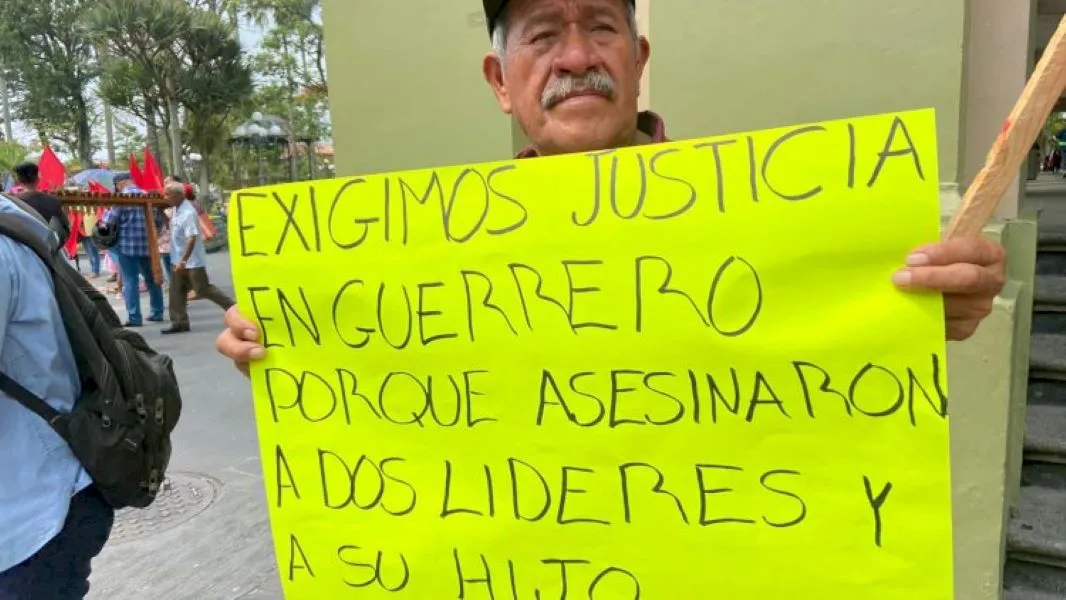 EXIGIMOS JUSTICIA
EN GUERRERO
PORQUE ASESINARON
A DOS LIDERES Y
A SU HIJO